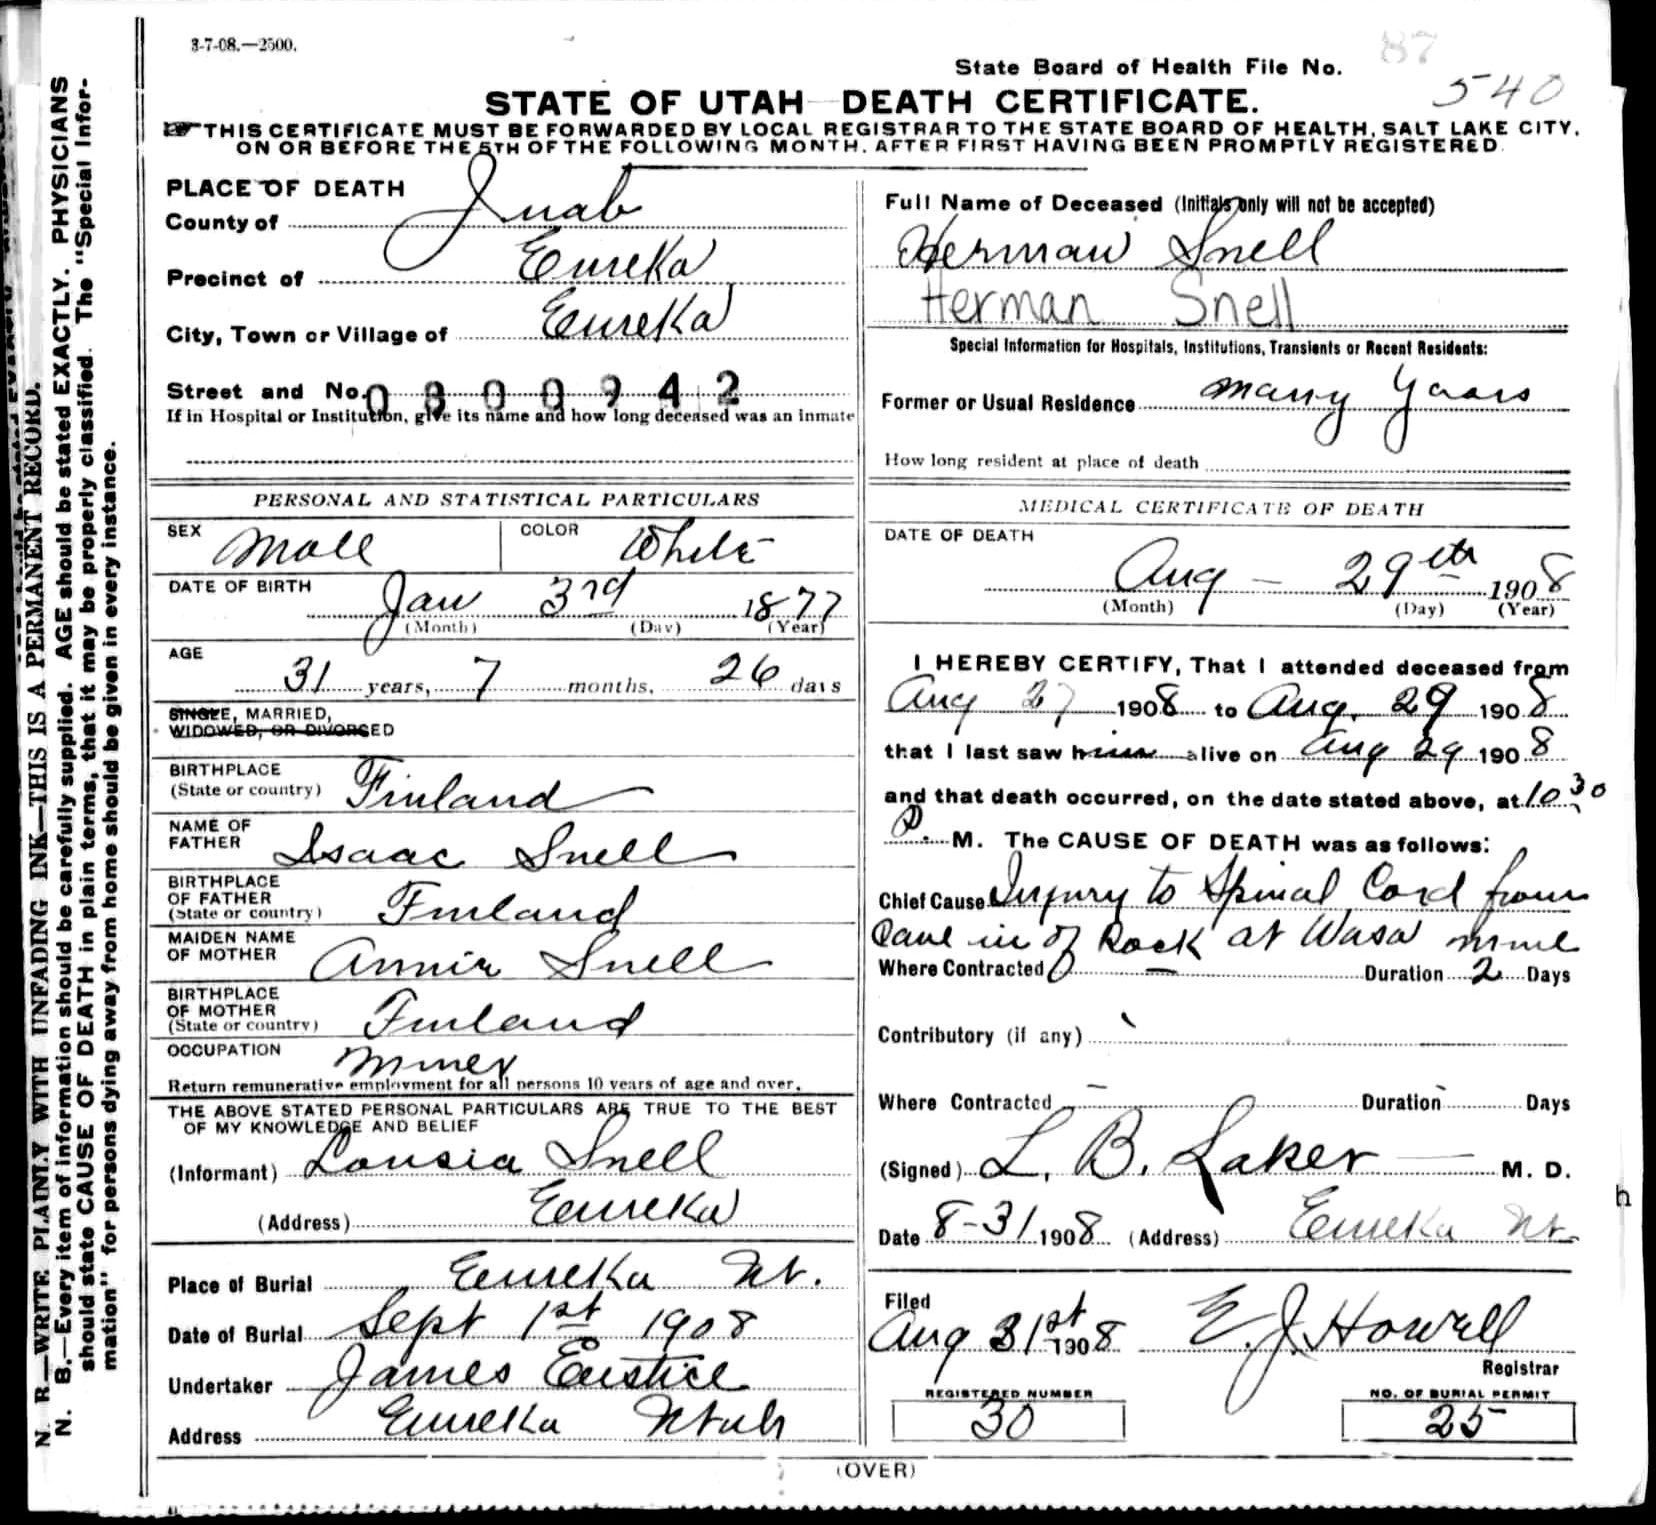 3-7-08.—2500.
87
State Board of Health File No. 540
STATE OF UTAH—DEATH CERTIFICATE.
THIS CERTIFICATE MUST BE FORWARDED BY LOCAL REGISTRAR TO THE STATE BOARD OF HEALTH, SALT LAKE CITY,
ON OR BEFORE THE 5TH OF THE FOLLOWING MONTH, AFTER FIRST HAVING BEEN PROMPTLY REGISTERED.
N. B.—WRITE PLAINLY WITH UNFADING INK—THIS IS A PERMANENT RECORD.
N. B.—Every item of information should be carefully supplied. AGE should be stated EXACTLY. PHYSICIANS
should state CAUSE OF DEATH in plain terms, that it may be properly classified. The "Special Infor-
mation" for persons dying away from home should be given in every instance.
PLACE OF DEATH
County of Juab
Precinct of Eureka
City, Town or Village of Eureka
Street and No. 0800942
If in Hospital or Institution, give its name and how long deceased was an inmate
PERSONAL AND STATISTICAL PARTICULARS
SEX Male COLOR White
DATE OF BIRTH
Jan 3rd 1877
(Month) (Day) (Year)
AGE
31 years, 7 months, 26 days
SINGLE, MARRIED,
WIDOWED, OR DIVORCED
BIRTHPLACE
(State or country) Finland
NAME OF
FATHER Isaac Snell
BIRTHPLACE
OF FATHER
(State or country) Finland
MAIDEN NAME
OF MOTHER Annie Snell
BIRTHPLACE
OF MOTHER
(State or country) Finland
OCCUPATION Miner
Return remunerative employment for all persons 10 years of age and over.
THE ABOVE STATED PERSONAL PARTICULARS ARE TRUE TO THE BEST
OF MY KNOWLEDGE AND BELIEF
(Informant) Lousia Snell
(Address) Eureka
Place of Burial Eureka Ut.
Date of Burial Sept 1st 1908
Undertaker James Eustice
Address Eureka Utah
Full Name of Deceased (Initials only will not be accepted)
Herman Snell
Herman Snell
Special Information for Hospitals, Institutions, Transients or Recent Residents:
Former or Usual Residence Many Years
How long resident at place of death
MEDICAL CERTIFICATE OF DEATH
DATE OF DEATH
Aug — 29th 1908
(Month) (Day) (Year)
I HEREBY CERTIFY, That I attended deceased from
Aug 27 1908 to Aug. 29 1908
that I last saw him alive on Aug 29 1908
and that death occurred, on the date stated above, at 10 30
P. M. The CAUSE OF DEATH was as follows:
Chief Cause Injury to Spinal Cord from
Cave in of Rock at Wasa mine
Where Contracted — Duration 2 Days
Contributory (if any)
Where Contracted — Duration Days
(Signed) L. B. Laker M. D.
Date 8-31 1908 (Address) Eureka Ut.
Filed
Aug 31st 1908 E. J. Howell
Registrar
REGISTERED NUMBER
30
NO. OF BURIAL PERMIT
25
(OVER)
h